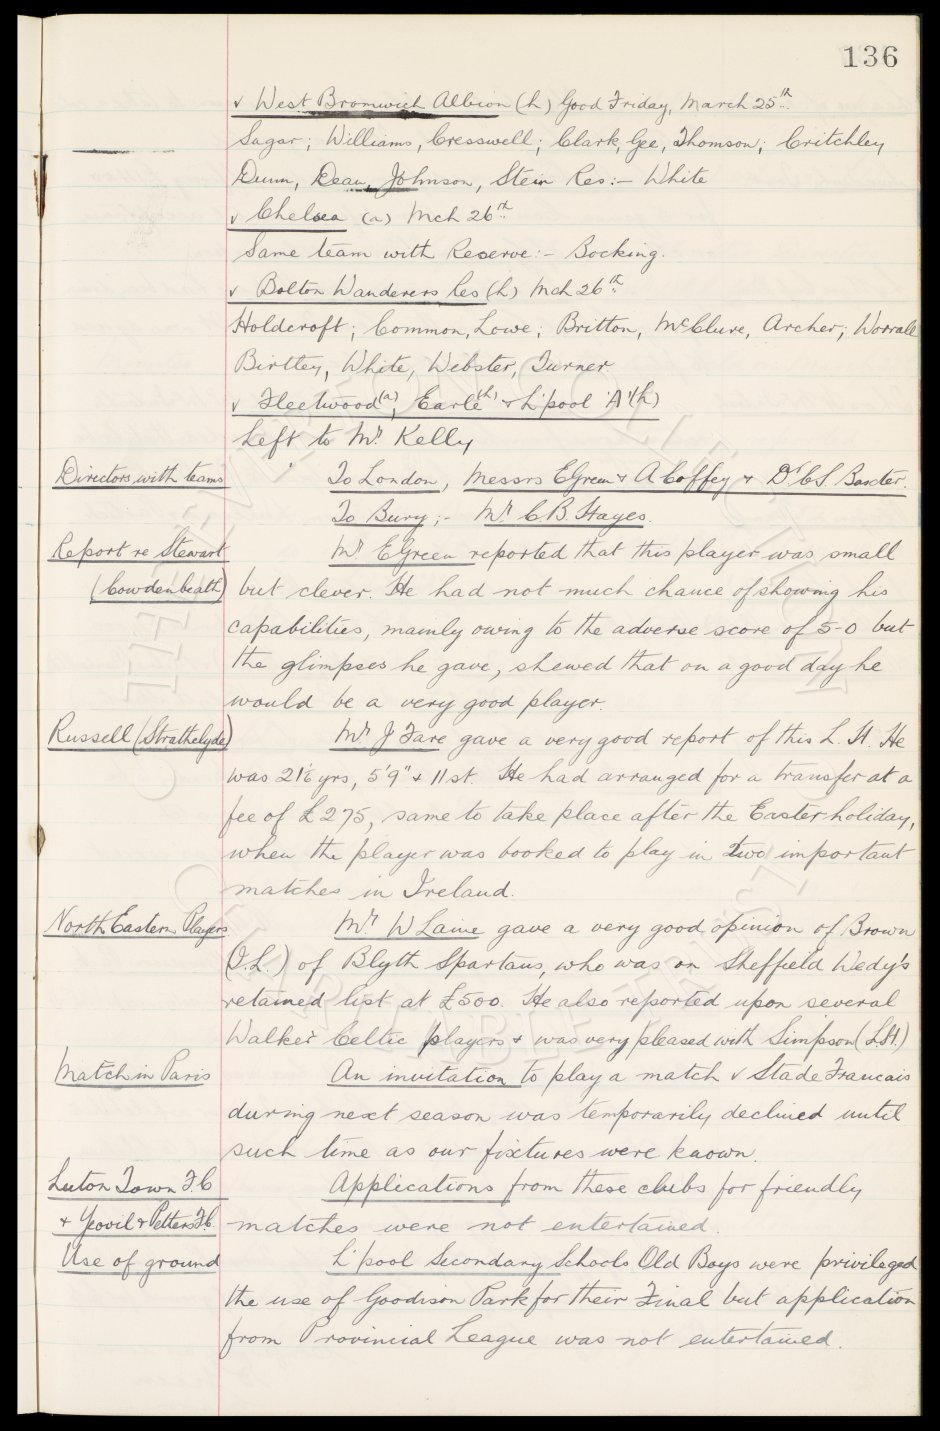 136
v West Bromwich Albion (h) Good Friday, March 25th
Sagar; Williams, Cresswell; Clark, Gee, Thomson; Critchley
Dunn, Dean, Johnson, Stein Res:- White
v Chelsea (a) Mch 26th
Same team with Reserve:- Bocking.
v Bolton Wanderers Res (h) Mch 26th
Holdcroft; Common, Lowe; Britton, McClure, Archer; Worrall
Birtley, White, Webster, Turner
v Fleetwood (a), Earle (h) & L'pool 'A' (h)
Left to Mr Kelly
Directors with teams To London, Messrs E Green & A Coffey & Dr C S Baxter.
To Bury;- Mr C B Hayes.
Report re Stewart Mr E Green reported that this player was small
(Cowdenbeath) but clever. He had not much chance of showing his
capabilities, mainly owing to the adverse score of 5-0 but
the glimpses he gave, shewed that on a good day he
would be a very good player.
Russell (Strathclyde) Mr J Fare gave a very good report of this L.H. He
was 21½ yrs, 5'9" & 11 st. He had arranged for a transfer at a
fee of £275, same to take place after the Easter holiday,
when the player was booked to play in two important
matches in Ireland.
North Eastern Players Mr W Laine gave a very good opinion of Brown
(I.L.) of Blyth Spartans, who was on Sheffield Wedy's
retained list at £500. He also reported upon several
Walker Celtic players & was very pleased with Simpson (L.H.)
Match in Paris An invitation to play a match v Stade Francais
during next season was temporarily declined until
such time as our fixtures were known.
Luton Town F.C Applications from these clubs for friendly
& Yeovil & Petters F.C. matches were not entertained.
Use of ground L'pool Secondary Schools Old Boys were privileged
the use of Goodison Park for their Final but application
from Provincial League was not entertained.